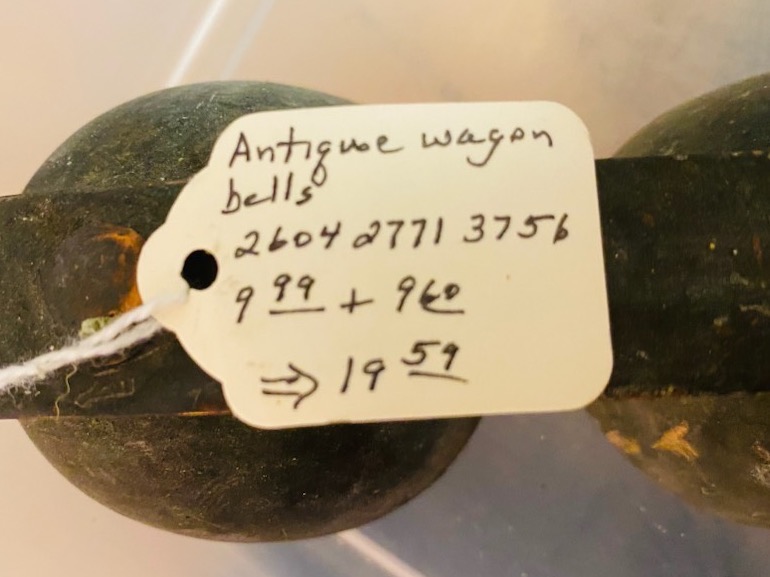 Antique wagon
bells
2604 2771 3756
9 99 + 9 60
⇒ 19 59